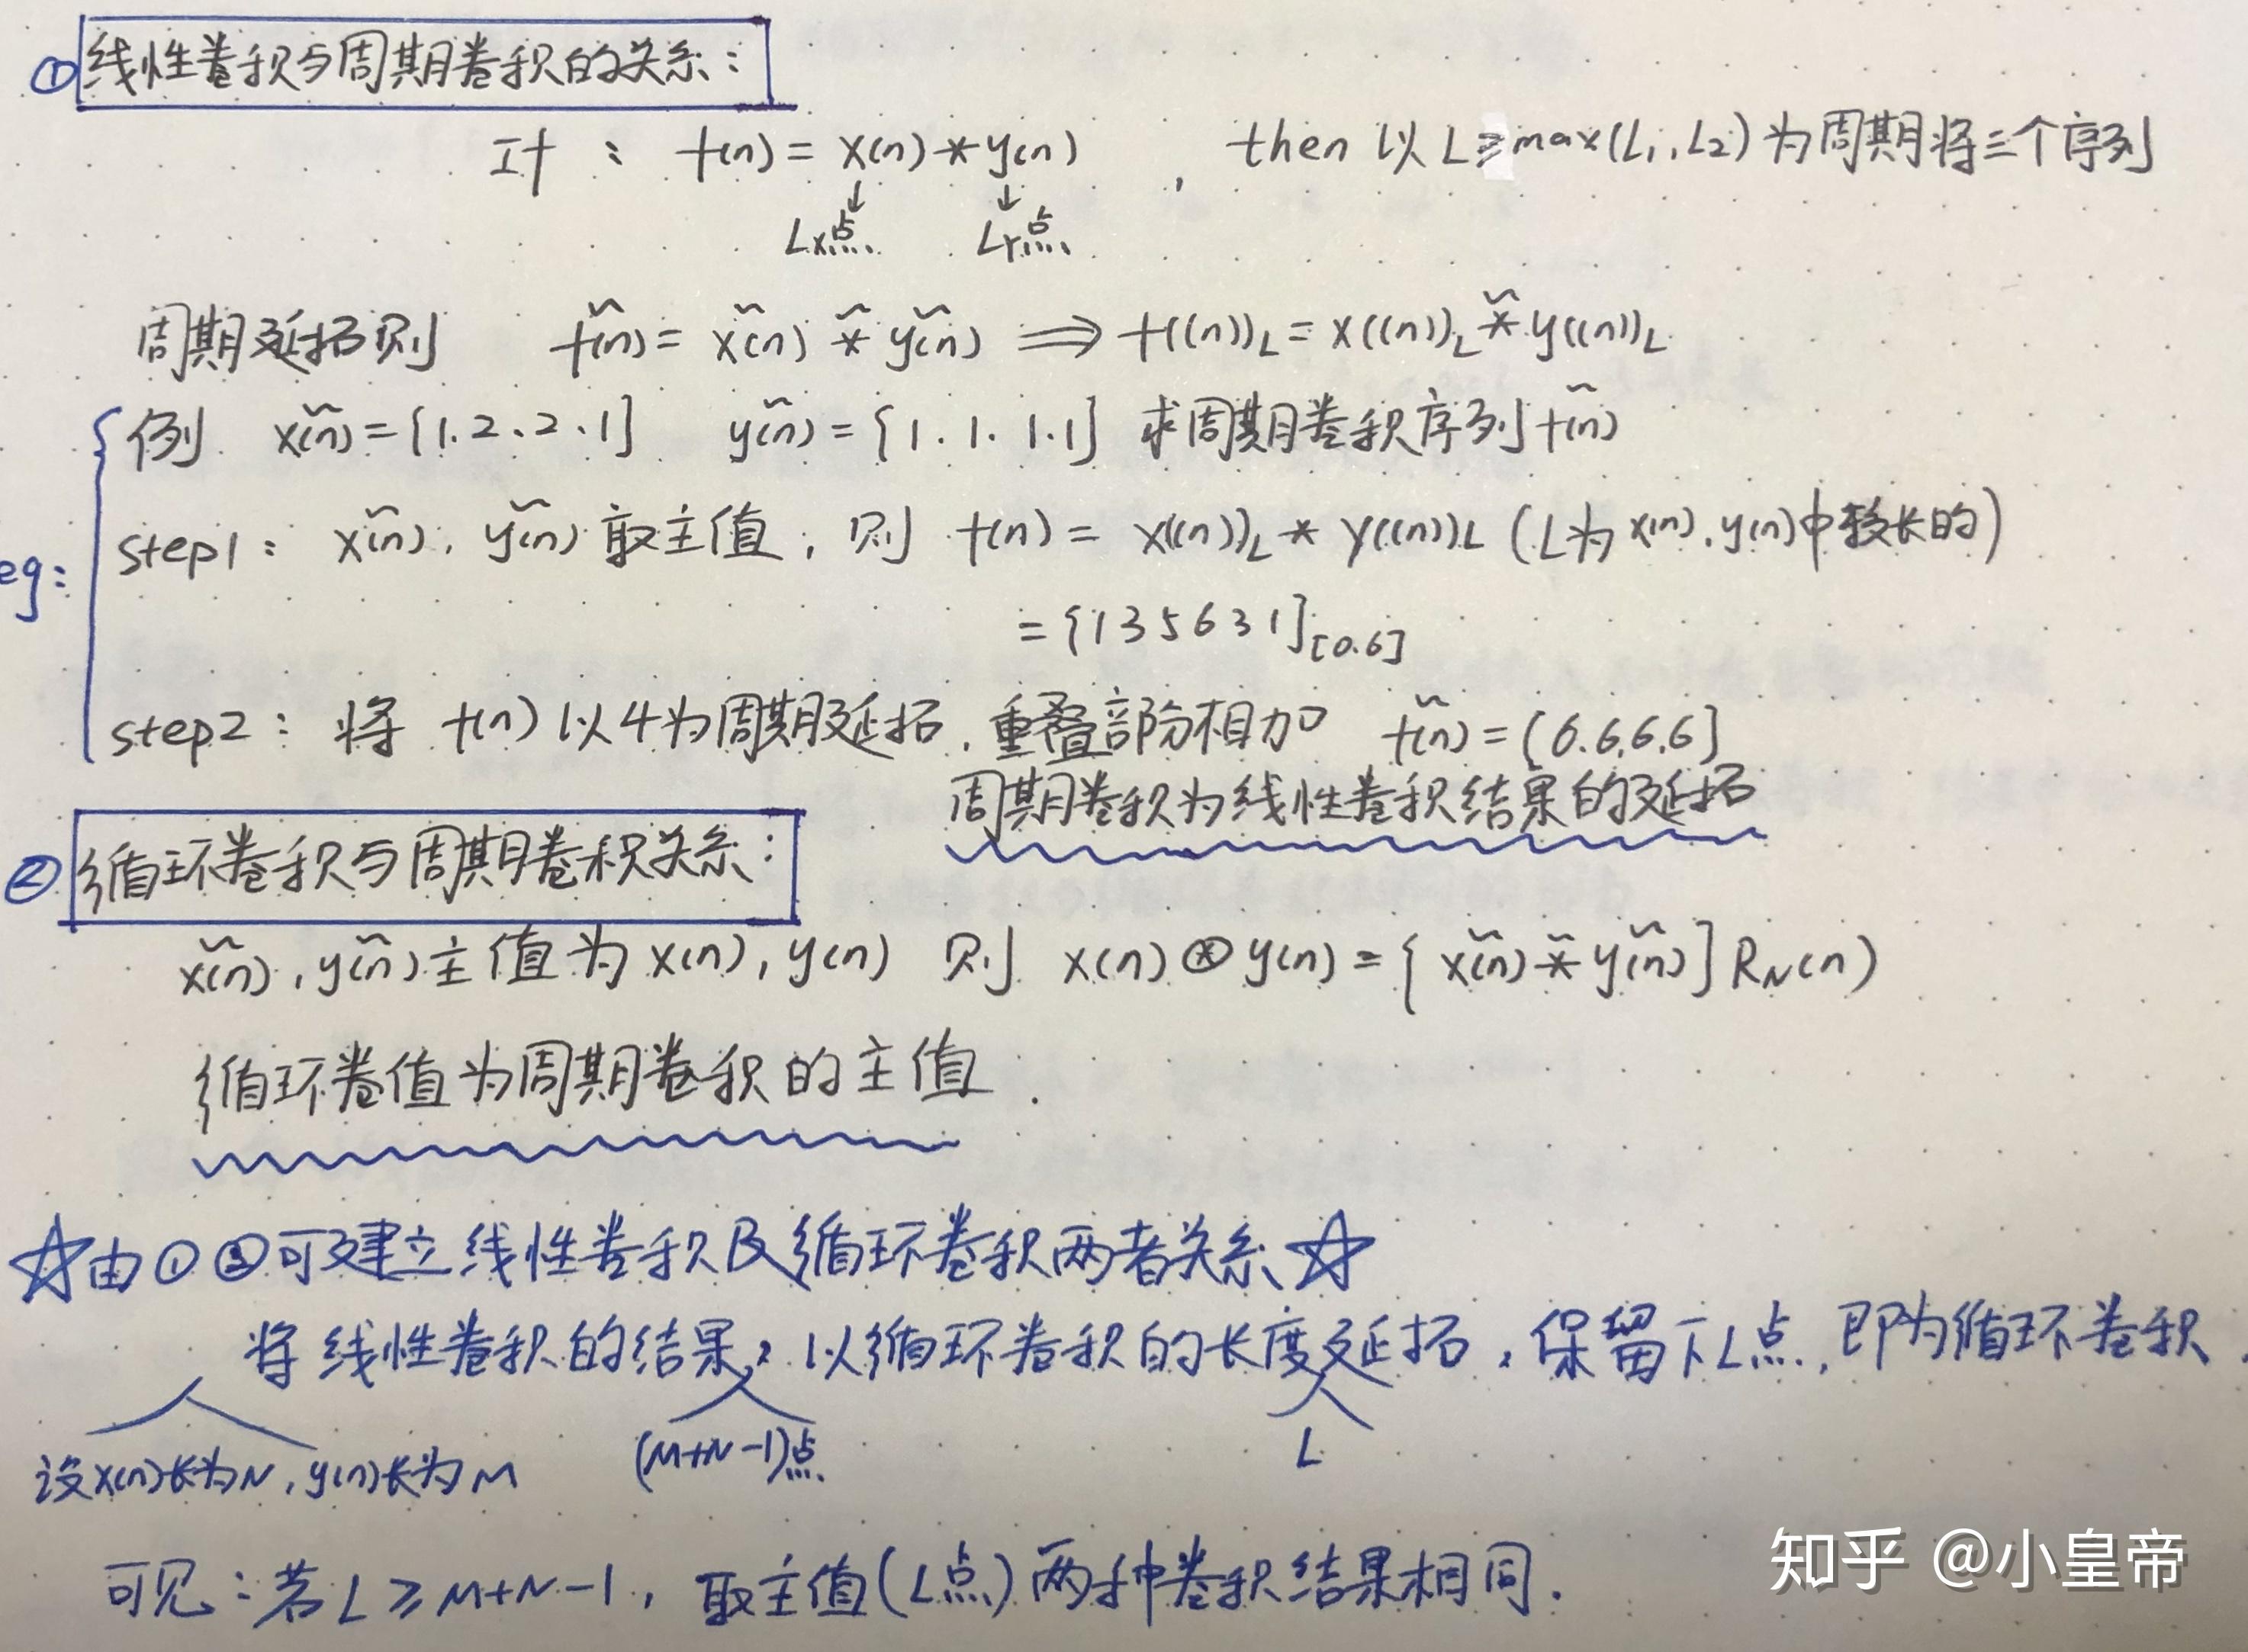 ①线性卷积与周期卷积的关系：
If : f(n) = x(n) * y(n) , then 以 L≥max(L1, L2) 为周期将三个序列
↓ ↓
Lx点 Ly点
周期延拓则 f̃(n) = x̃(n) *̃ ỹ(n) ⟹ f((n))L = x((n))L *̃ y((n))L
例 x̃(n) = {1.2、2、1} ỹ(n) = {1.1.1.1} 求周期卷积序列 f̃(n)
eg:
step1: x̃(n), ỹ(n) 取主值，则 f(n) = x((n))L * y((n))L (L为 x(n), y(n)中较长的)
= {1 3 5 6 3 1}[0.6]
step2: 将 f(n) 以4为周期延拓，重叠部分相加 f̃(n) = {6.6.6.6}
周期卷积为线性卷积结果的延拓
②循环卷积与周期卷积关系：
x̃(n), ỹ(n) 主值为 x(n), y(n) 则 x(n) ⊛ y(n) = { x̃(n) *̃ ỹ(n) } RN(n)
循环卷值为周期卷积的主值.
☆由①②可建立线性卷积及循环卷积两者关系☆
将线性卷积的结果，以循环卷积的长度延拓，保留下L点，即为循环卷积.
设x(n)长为N, y(n)长为M (M+N-1)点 L
可见：若 L ≥ M+N-1, 取主值(L点) 两种卷积结果相同.
知乎 @小皇帝